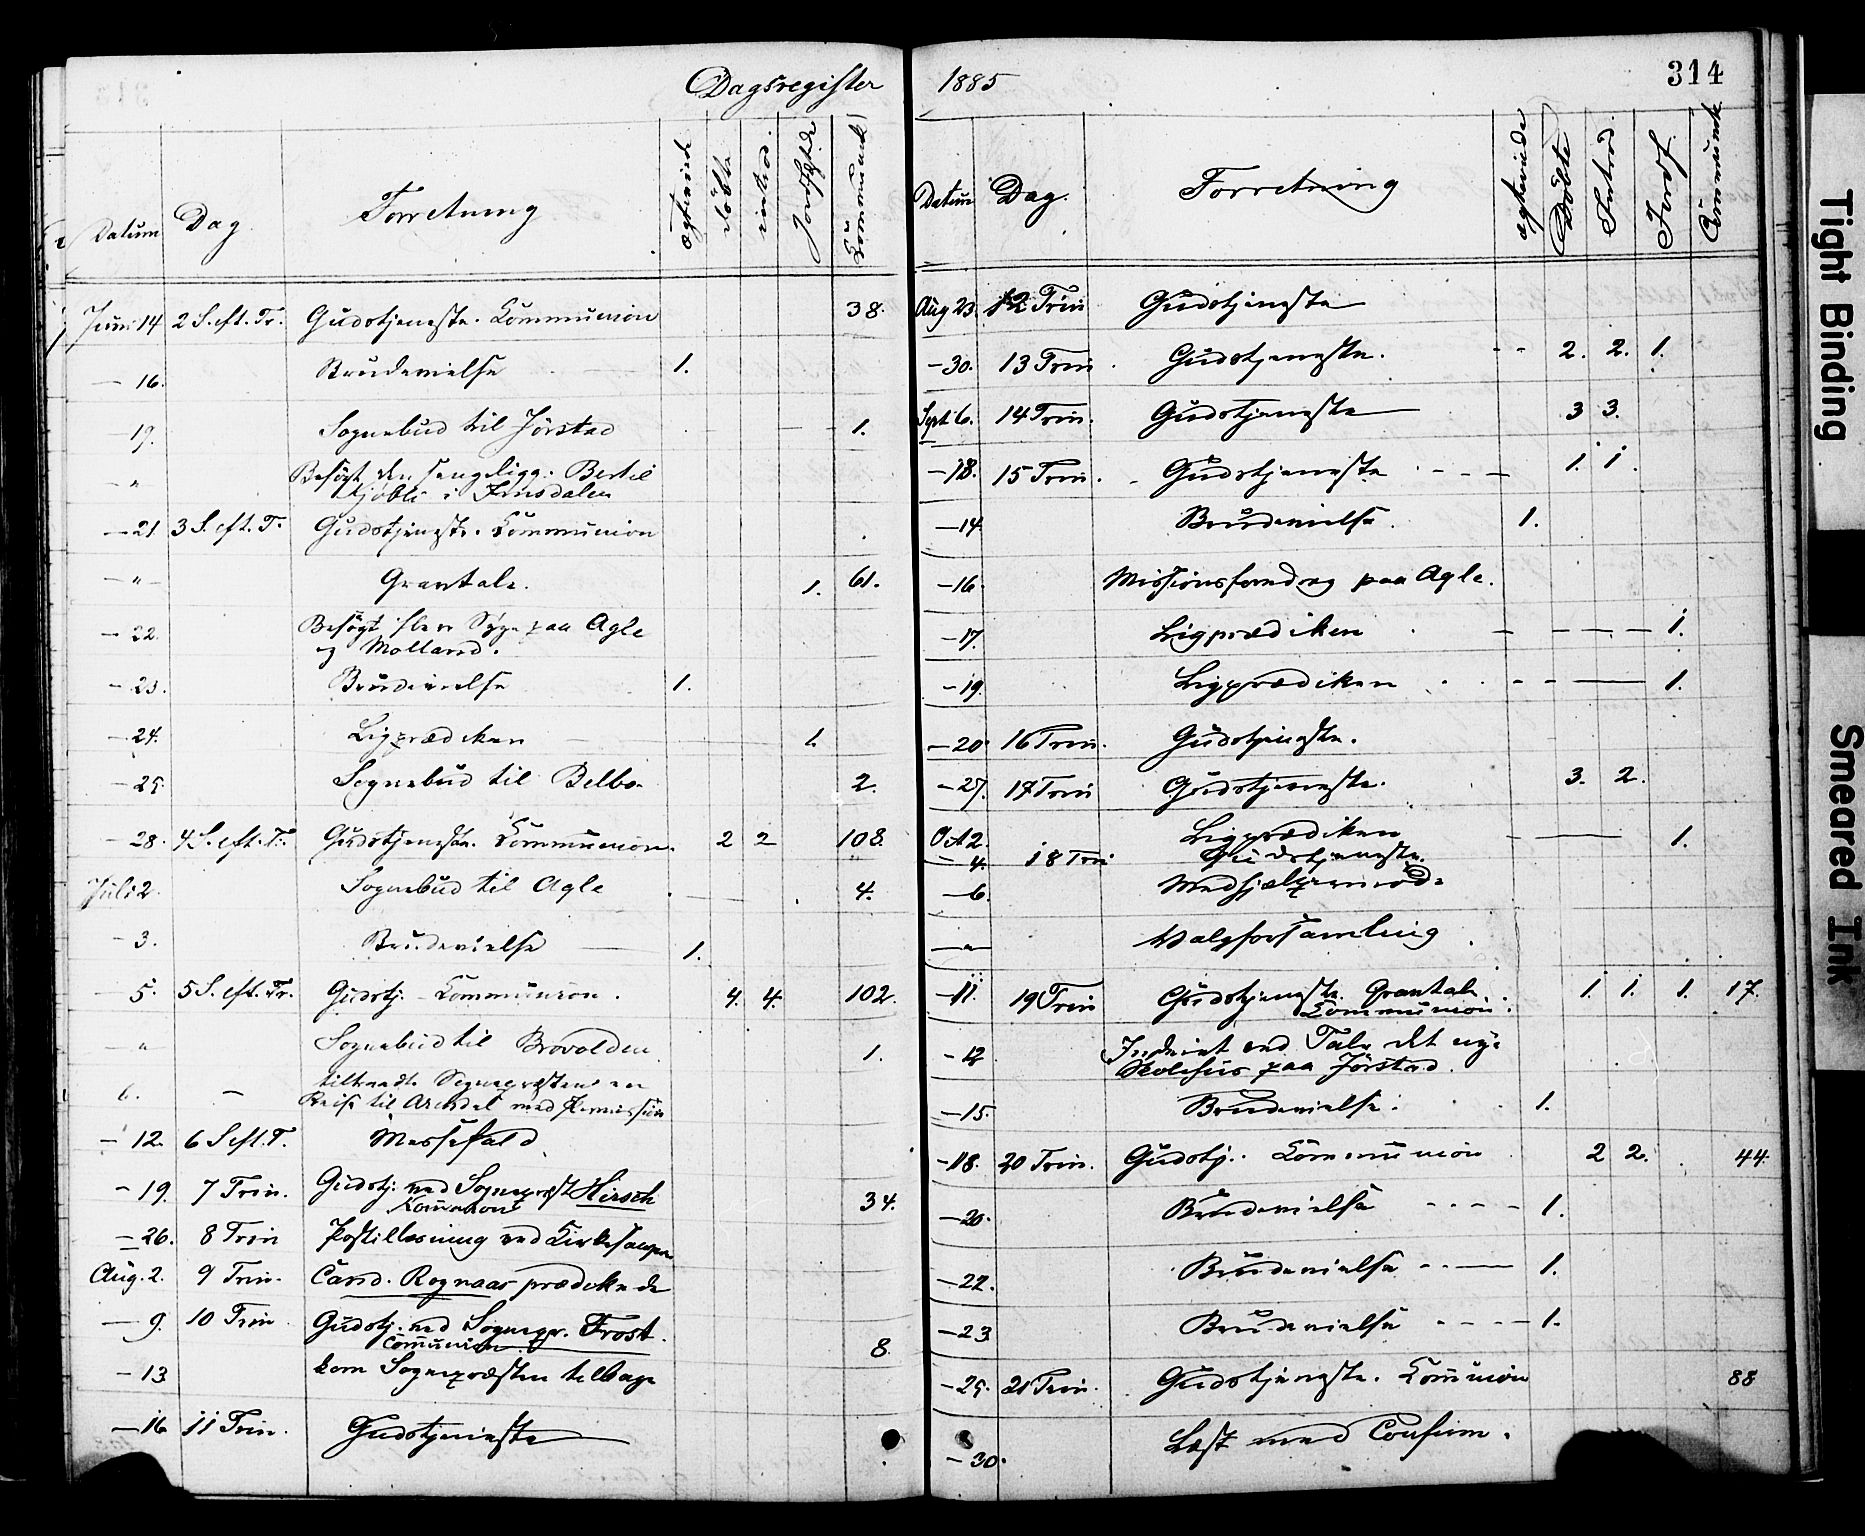 Dagsregister 1885 314
Datum Dag Forretning ægteviede döbte introd. Jordfæstede Communic.
Juni 14 2 S. eft. Tr. Gudstjeneste. Communion 38.
— 16. Brudevielse 1.
— 19. Sognebud til Jörstad 1.
— " Besögt den sengeligg. Bertil
i Imsdalen
— 21. 3 S. eft. T. Gudstjeneste. Communion
— " — Gravtale. 1. 61.
— 22. Besögt flere Syge paa Agle
og Molland.
— 23. Brudevielse 1.
— 24. Ligprædiken 1.
— 25. Sognebud til Belbo. 2.
— 28. 4 S. eft. Tr. Gudstjeneste. Communion. 2 2 108.
Juli 2. Sognebud til Agle 4.
— 3. Brudevielse 1.
— 5. 5 S. eft. Tr. Gudstj. – Communion. 4. 4. 102.
— " Sognebud til Brovolden 1.
6. — tiltraadte Sognepræsten en
Reise til Arendal med Permission
— 12. 6 S. eft. T. Messefald
— 19. 7 Trin. Gudstj. ved Sognepræst Hirsch
Communion 34.
— 26. 8 Trin Postillæsning ved Kirkesangeren
Aug. 2. 9 Trin. Cand. Rognaas prædikede
— 9. 10 Trin Gudstj. ved Sognepr. Frost.
Communion 8.
— 13 kom Sognepræsten tilbage
— 16 11 Trin. Gudstjeneste
Datum Dag. Forretning ægteviede Döbte Introd. Jordf. Communic.
Aug 23. 12 Trin Gudstjeneste
— 30. 13 Trin. Gudstjeneste. 2. 2. 1.
Sept 6. 14 Trin. Gudstjeneste 3 3.
— 13. 15 Trin. Gudstjeneste 1. 1.
— 14. Brudevielse. 1.
— 16. Missionsforedrag paa Agle.
— 17. Ligprædiken 1.
— 19. Ligprædiken 1.
— 20 16 Trin. Gudstjeneste.
— 27. 17 Trin Gudstjeneste. 3. 2.
Oct 2. Ligprædiken 1.
— 4. 18 Trin Gudstjeneste.
— 6. Medhjælpermöde
— " — Valgforsamling
— 11. 19 Trin Gudstjeneste. Gravtale 1. 1. 1. 17.
Communion.
— 12 Indviet ved Tale det nye
Skolehus paa Jörstad.
— 15. Brudevielse. 1.
— 18. 20 Trin. Gudstj. Communion 2 2. 44.
— 20. Brudevielse 1.
— 22. Brudevielse 1.
— 23 Brudevielse 1.
— 25. 21 Trin. Gudstjeneste. Communion 88
— 30. Læst med Confirm.
Tight Binding
Smeared Ink